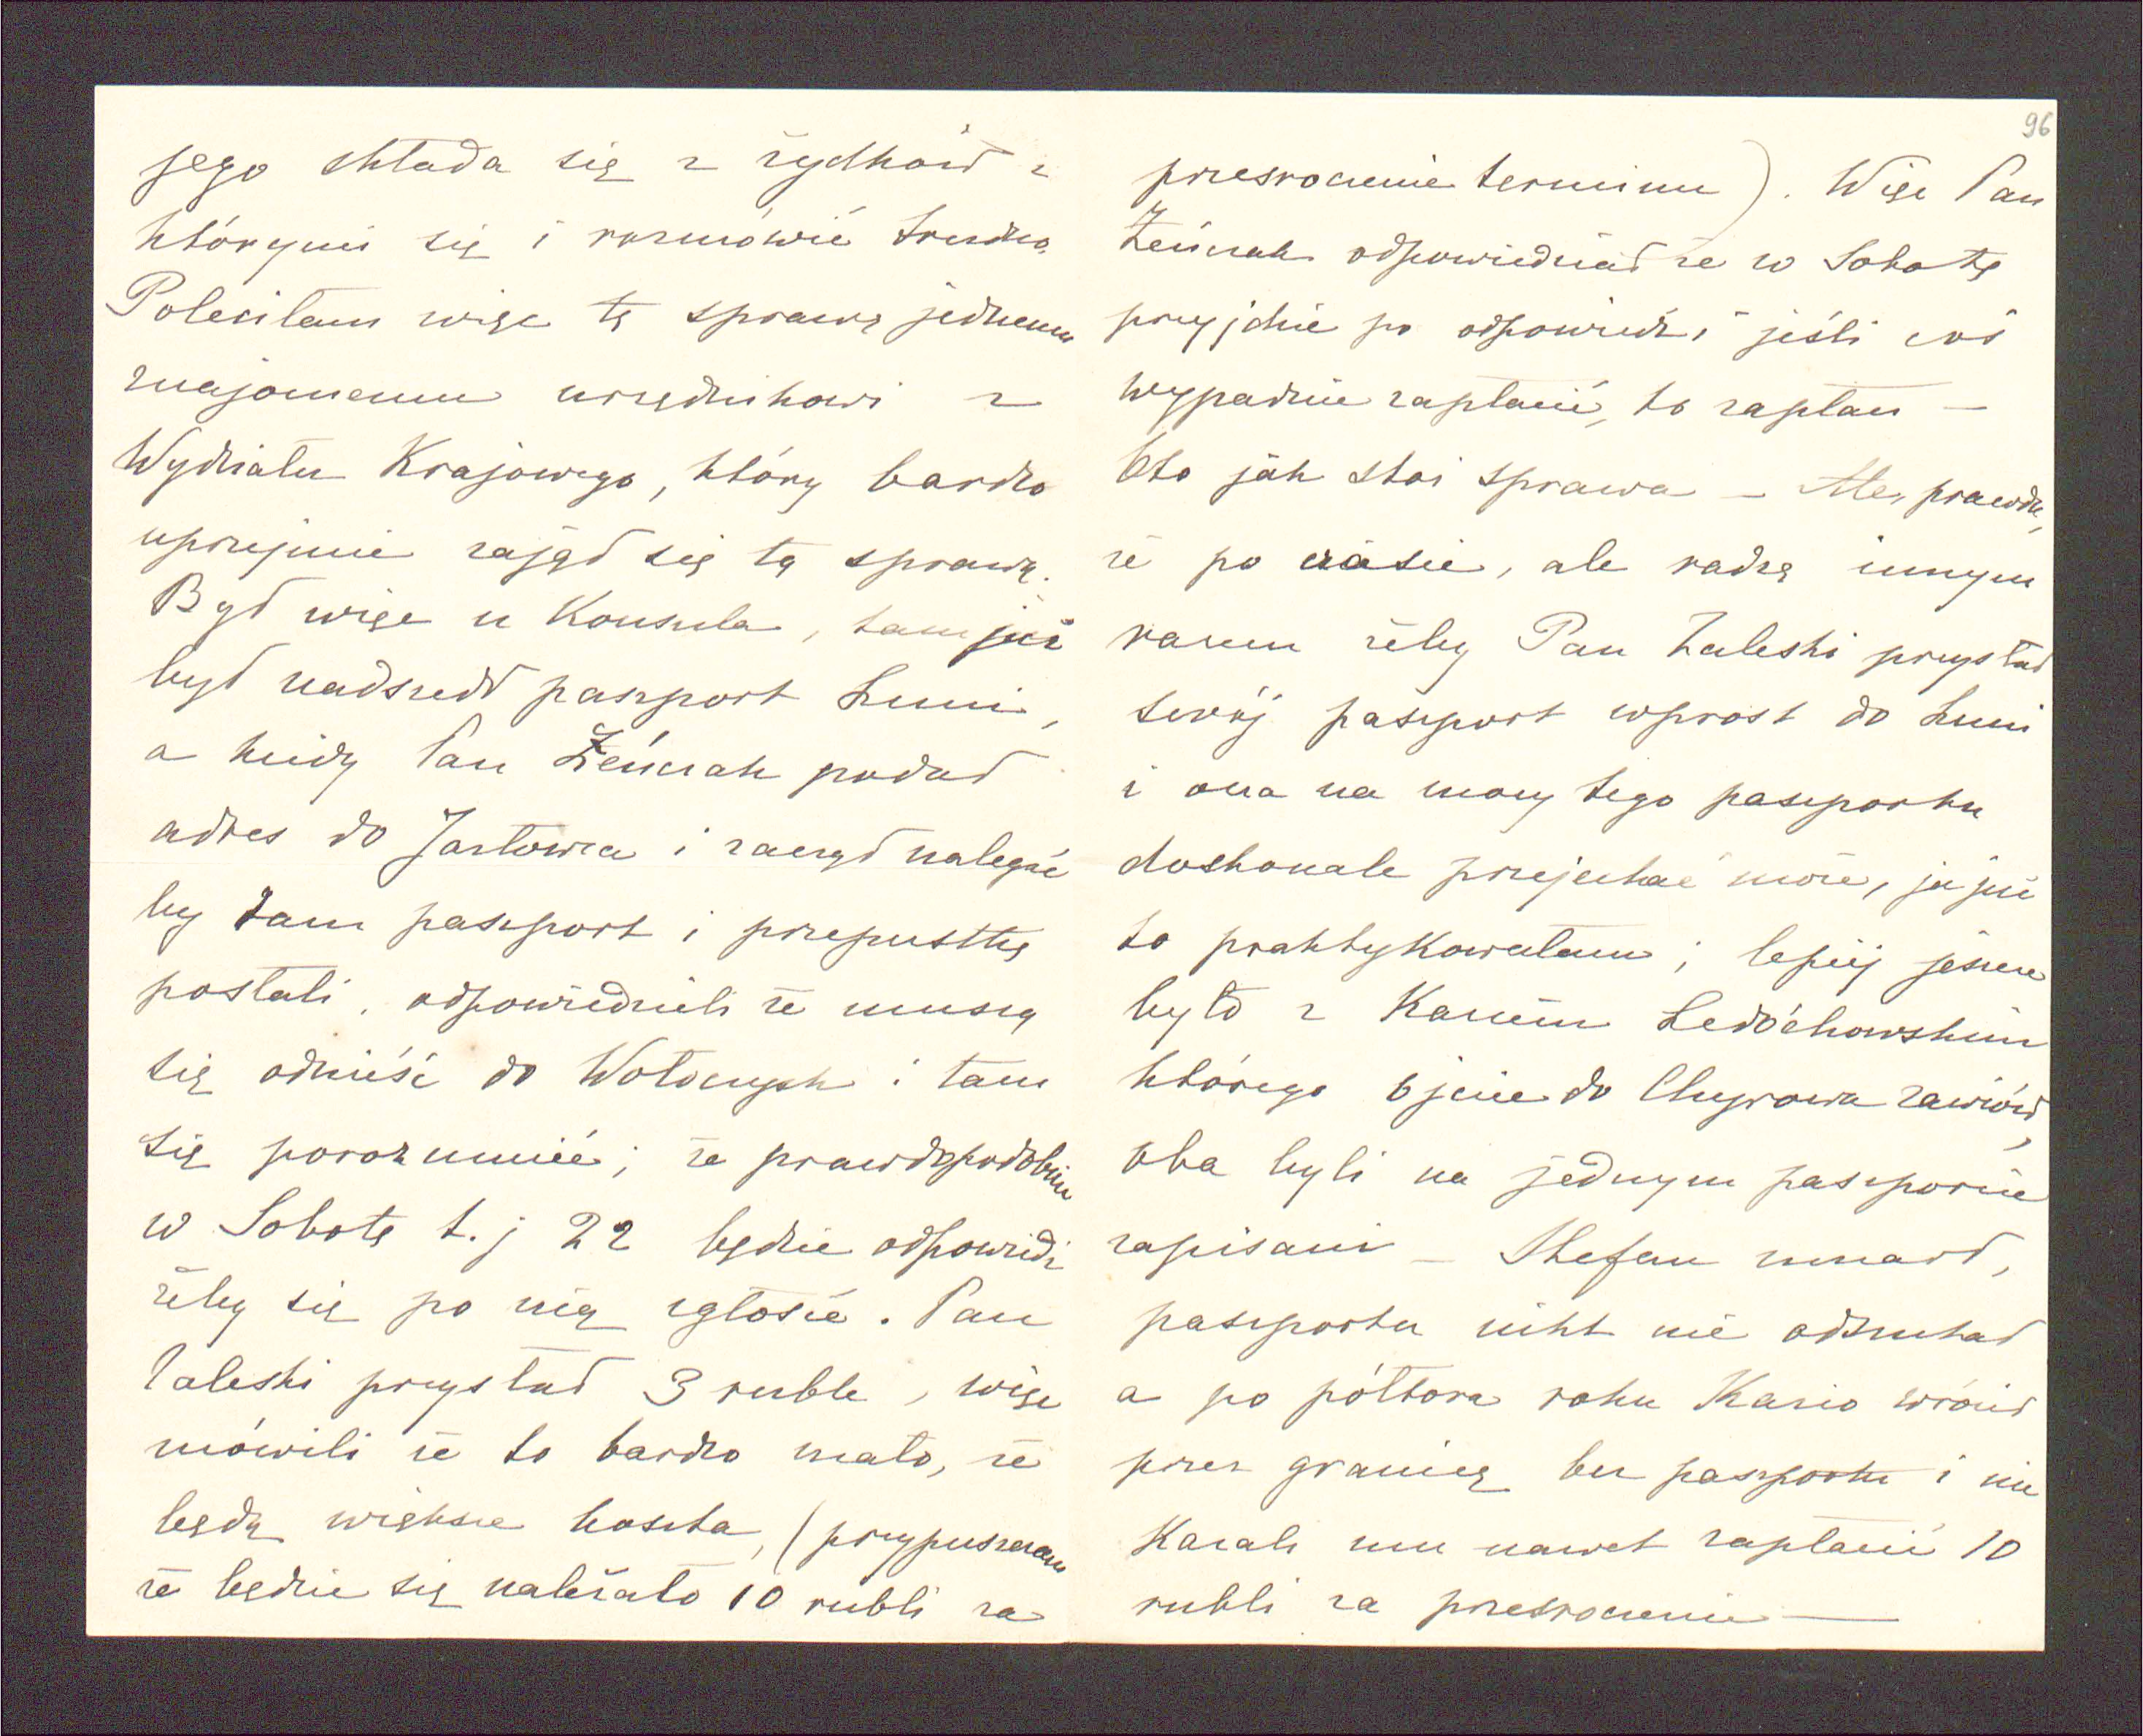 jego składa się z żydków z
którymi się i rozmówić trudno.
Poleciłam więc tę sprawę jednemu
znajomemu urzędnikowi z
Wydziału Krajowego, który bardzo
uprzejmie zajął się tą sprawą.
Był więc u Konsula, tam już
był nadszedł paszport Luni,
a kiedy Pan Żeńczak podał
adres do Jazłowca i zaczął nalegać
by tam paszport i przepustkę
posłali, odpowiedzieli że muszą
się odnieść do Wołoczysk i tam
się porozumieć; że prawdopodobnie
w Sobotę t.j 22 będzie odpowiedź
żeby się po nią zgłosić. Pan
Zaleski przysłał 3 ruble, więc
mówili że to bardzo mało, że
będą większe koszta, (przypuszczam
że będzie się należało 10 rubli za
96
przesroczenie terminu). Więc Pan
Żeńczak odpowiedział że w Sobotę
przyjdzie po odpowiedź i jeśli coś
wypadnie zapłacić, to zapłaci —
Oto jak stoi sprawa — Ale, prawda,
że po czasie, ale radzę innym
razem żeby Pan Zaleski przysłał
swój paszport wprost do Luni
i ona na mocy tego paszportu
doskonale przejechać może, ja już
to praktykowałam; lepiej jeszcze
było z Kaziem Ledóchowskim
którego ojciec do Chyrowa zawiózł,
oba byli na jednym paszporcie
zapisani — Stefan umarł,
paszportu nikt nie odszukał
a po półtora roku Kazio wrócił
przez granicę bez paszportu i nie
Kazali mu nawet zapłacić 10
rubli za przesroczenie —